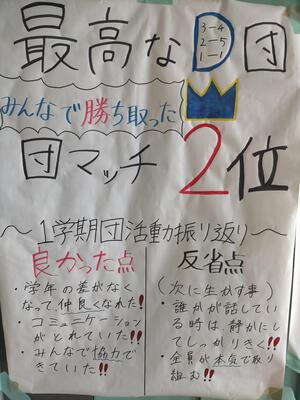 最高なD団
3-4
2-5
1-1
みんなで勝ち取った
団マッチ2位
～1学期団活動振り返り～
良かった点
・学年の差がなく
なって、仲良くなれた!!
・コミュニケーション
がとれていた!!
・みんなで協力で
きていた!!
反省点
(次に生かす事)
・誰かが話してい
る時は、静かにして
しっかりきく!!
・全員が本気で取り
組む!!